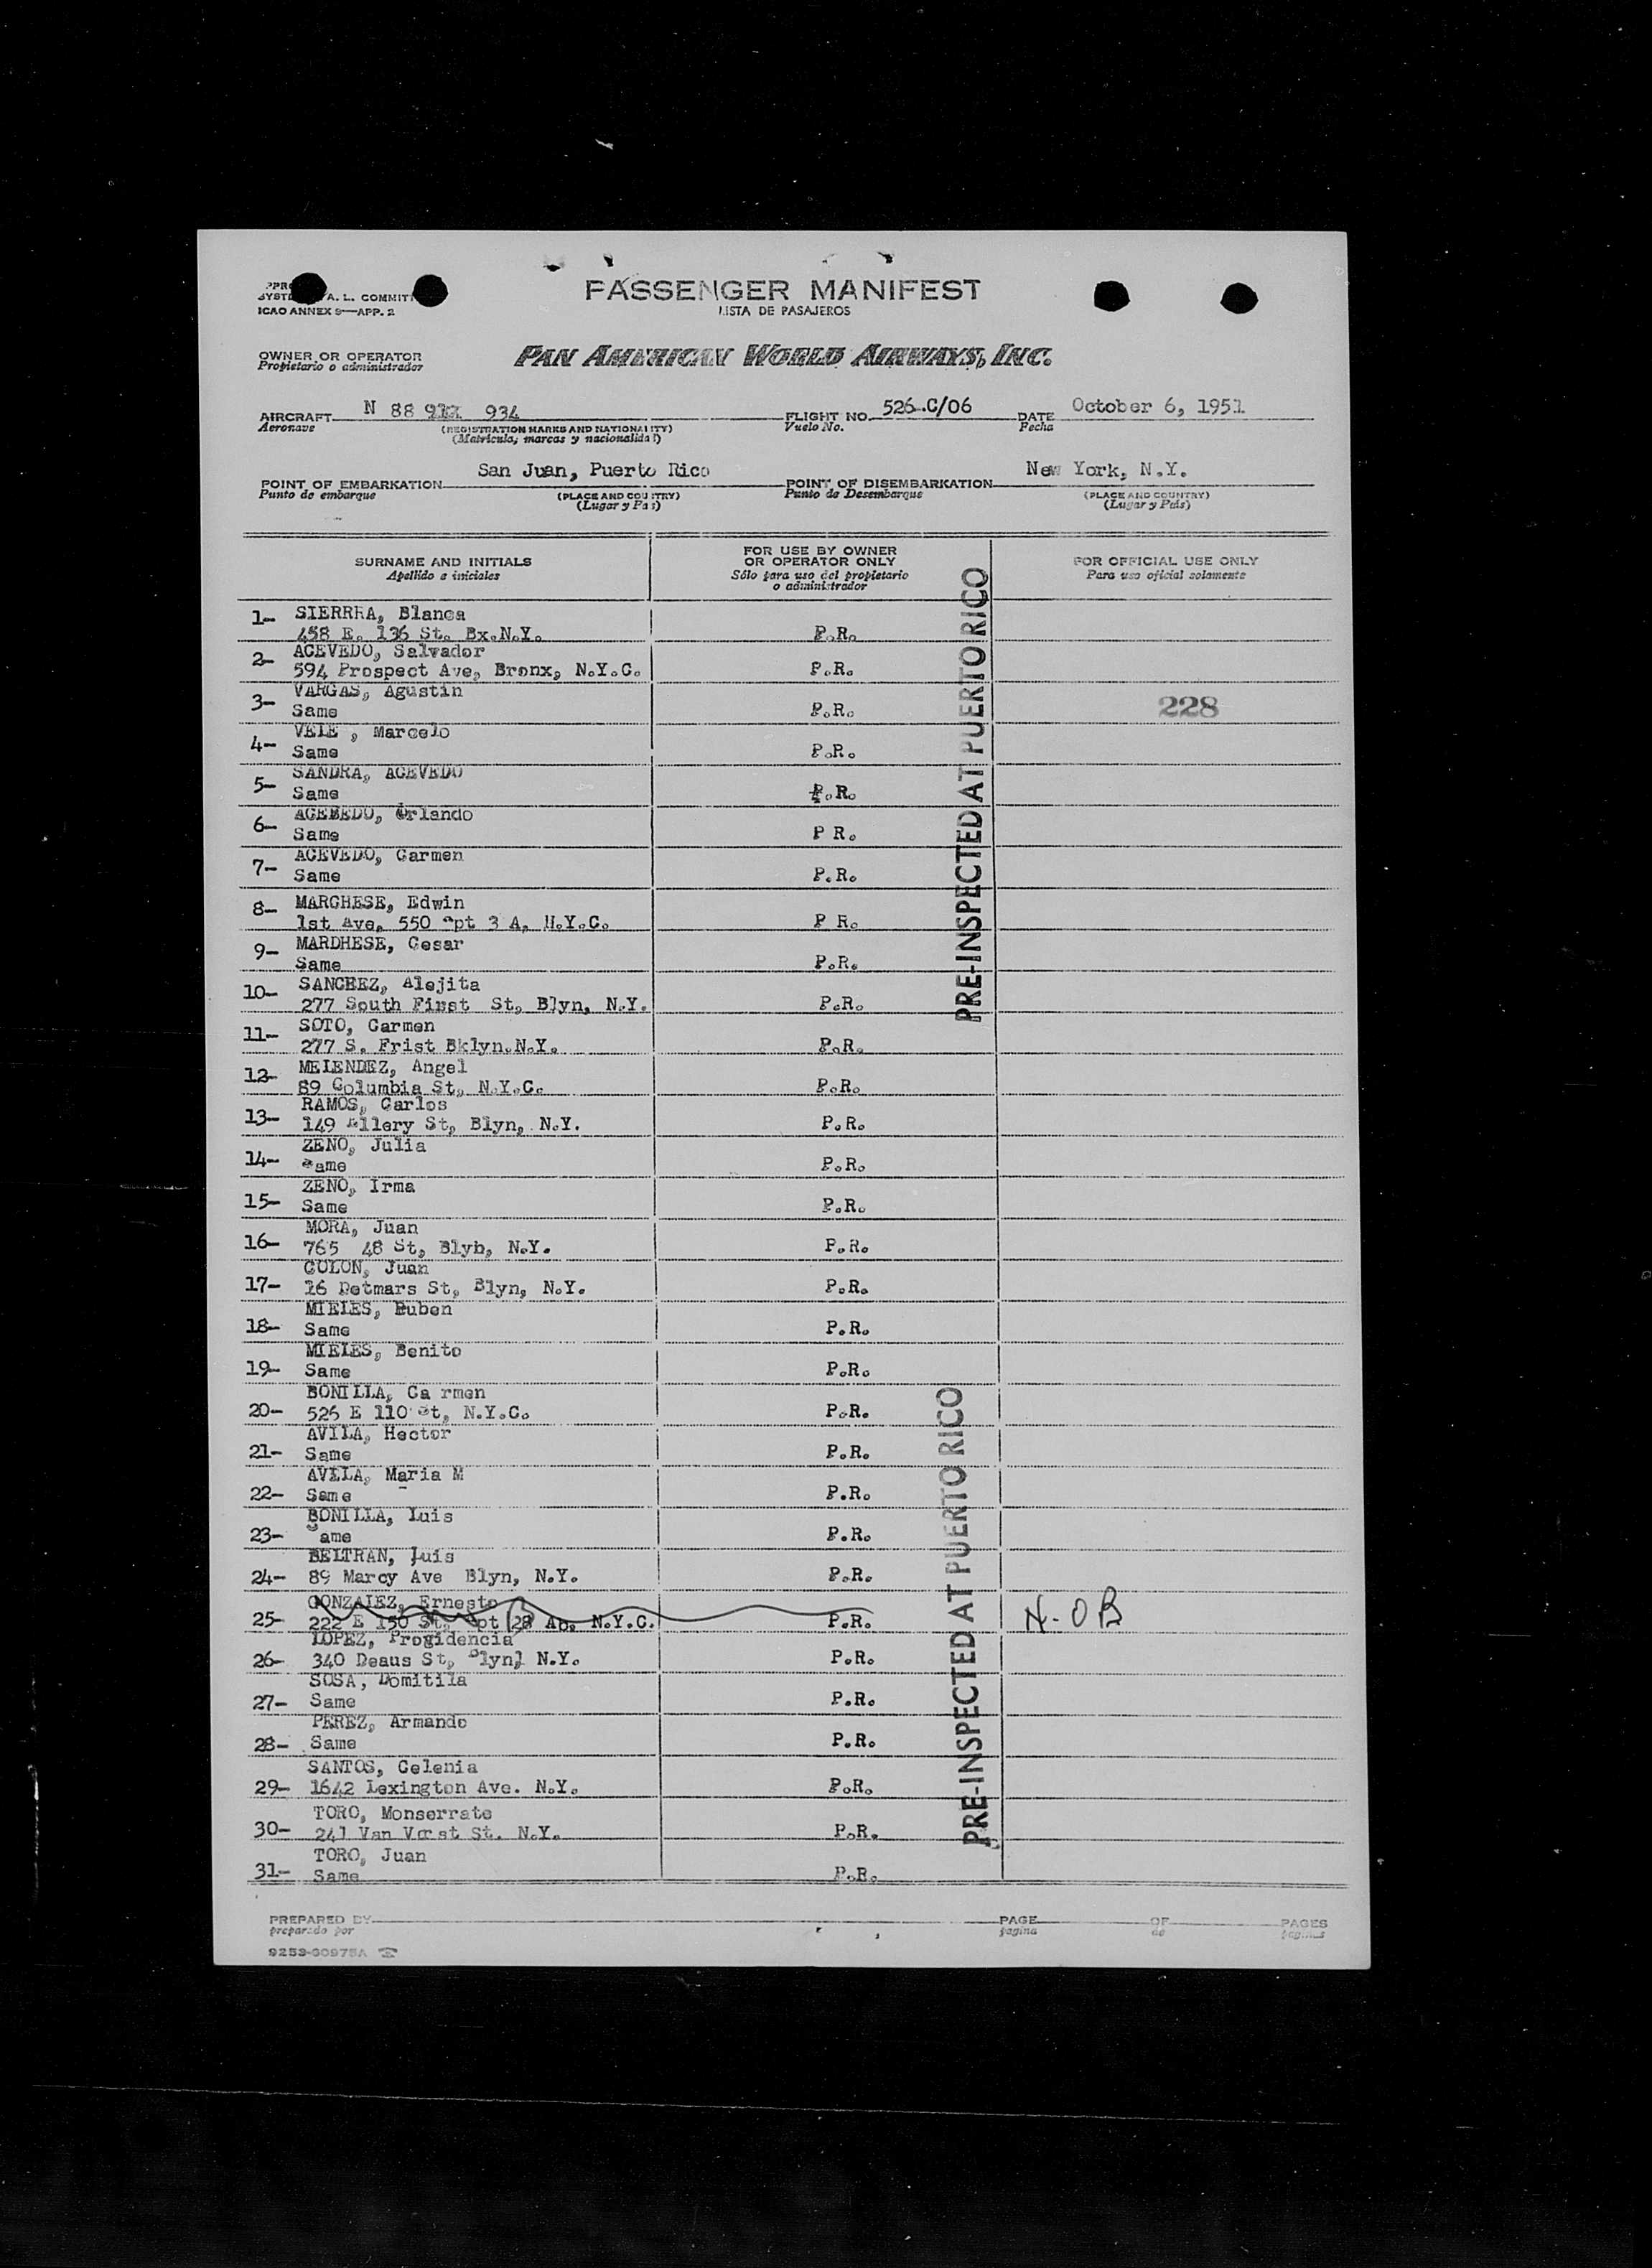 A. L. COMMIT
ICAO ANNEX 9—APP. 2
PASSENGER MANIFEST
LISTA DE PASAJEROS
OWNER OR OPERATOR
Propietario o administrador
PAN AMERICAN WORLD AIRWAYS, INC.
AIRCRAFT N 88 934
Aeronave
(REGISTRATION MARKS AND NATIONALITY)
(Matricula, marcas y nacionalidad)
FLIGHT NO. 526-C/06
Vuelo No.
DATE October 6, 1951
Fecha
POINT OF EMBARKATION San Juan, Puerto Rico
Punto de embarque
(PLACE AND COUNTRY)
(Lugar y Pais)
POINT OF DISEMBARKATION New York, N.Y.
Punto de Desembarque
(PLACE AND COUNTRY)
(Lugar y Pais)
SURNAME AND INITIALS
Apellido e iniciales
FOR USE BY OWNER
OR OPERATOR ONLY
Sólo para uso del propietario
o administrador
FOR OFFICIAL USE ONLY
Para uso oficial solamente
1- SIERRRA, Blanca
458 E. 136 St. Bx.N.Y. P.R.
2- ACEVEDO, Salvador
594 Prospect Ave, Bronx, N.Y.C. P.R.
3- VARGAS, Agustin
Same P.R. 228
4- VELE , Marcelo
Same P.R.
5- SANDRA, ACEVEDO
Same P.R.
6- ACEBEDO, Orlando
Same P R.
7- ACEVEDO, Carmen
Same P.R.
8- MARCHESE, Edwin
1st Ave, 550 Apt 3 A, N.Y.C. P R.
9- MARDHESE, Cesar
Same P.R.
10- SANCHEZ, Alejita
277 South First St, Blyn, N.Y. P.R.
11- SOTO, Carmen
277 S. Frist Bklyn.N.Y. P.R.
12- MELENDEZ, Angel
89 Columbia St, N.Y.C. P.R.
13- RAMOS, Carlos
149 Ellery St, Blyn, N.Y. P.R.
14- ZENO, Julia
Same P.R.
15- ZENO, Irma
Same P.R.
16- MORA, Juan
765 48 St, Blyh, N.Y. P.R.
17- COLON, Juan
16 Detmars St, Blyn, N.Y. P.R.
18- MIELES, Ruben
Same P.R.
19- MIELES, Benito
Same P.R.
20- BONILLA, Ca rmen
526 E 110 St, N.Y.C. P.R.
21- AVILA, Hector
Same P.R.
22- AVILA, Maria M
Same P.R.
23- BONILLA, Luis
Same P.R.
24- BELTRAN, Luis
89 Marcy Ave Blyn, N.Y. P.R.
25- GONZALEZ, Ernesto
222 E 150 St, Apt 28 Ap, N.Y.C. P.R. N-OB
26- LOPEZ, Progidencia
340 Deaus St, Blyn, N.Y. P.R.
27- SOSA, Domitila
Same P.R.
28- PEREZ, Armando
Same P.R.
29- SANTOS, Celenia
1642 Lexington Ave. N.Y. P.R.
30- TORO, Monserrate
241 Van Vorst St. N.Y. P.R.
31- TORO, Juan
Same P.R.
PRE-INSPECTED AT PUERTO RICO
PRE-INSPECTED AT PUERTO RICO
PREPARED BY
preparado por
PAGE
pagina
OF
de
PAGES
paginas
9253-60975A